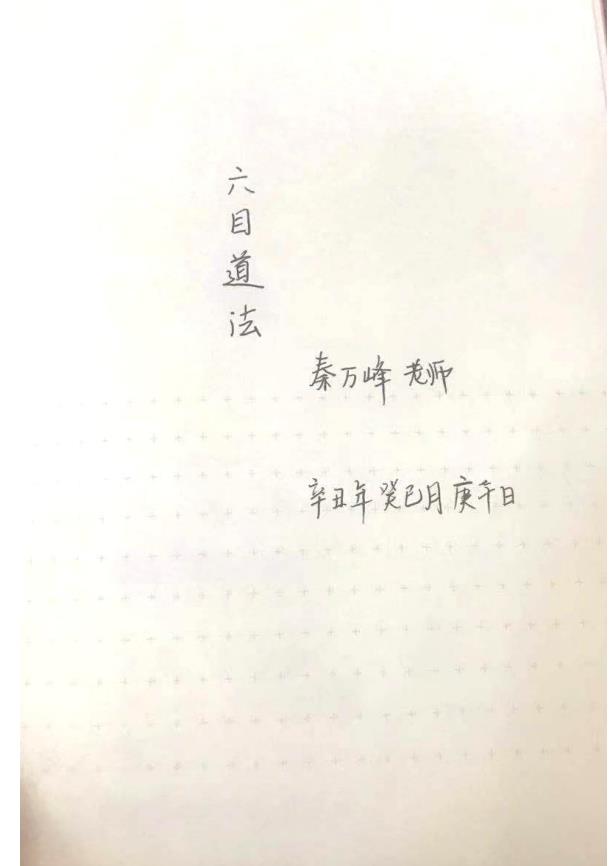 六目道法
秦万峰 老师
辛丑年癸巳月庚午日